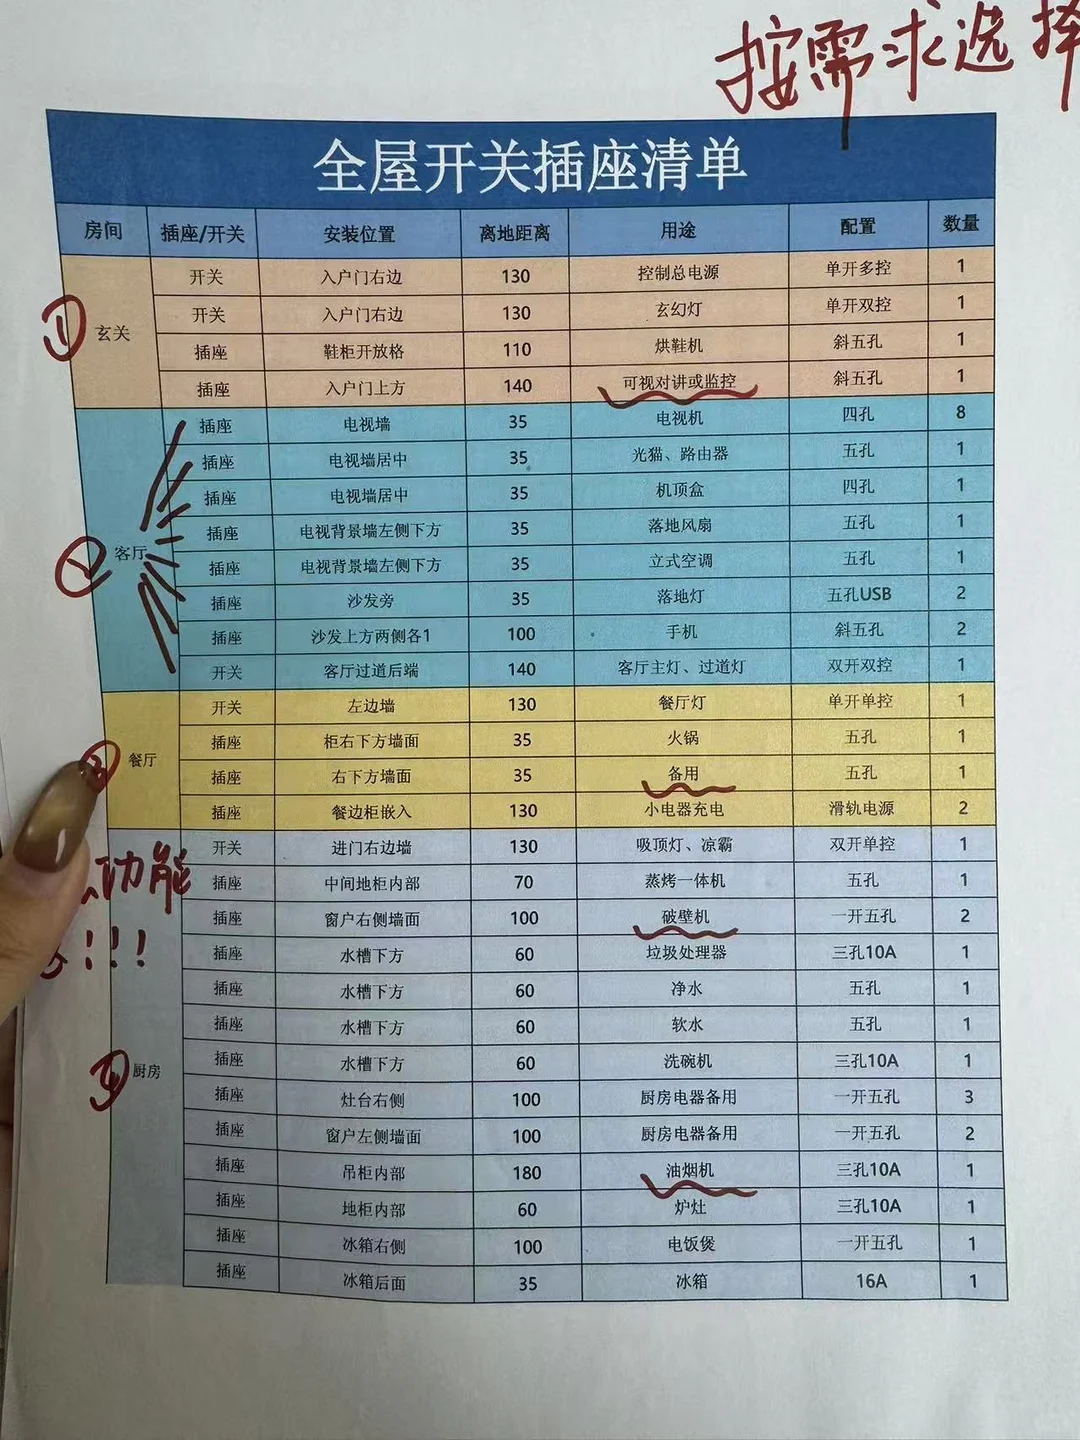 按需求选择
全屋开关插座清单
房间 插座/开关 安装位置 离地距离 用途 配置 数量
① 玄关
开关 入户门右边 130 控制总电源 单开多控 1
开关 入户门右边 130 玄幻灯 单开双控 1
插座 鞋柜开放格 110 烘鞋机 斜五孔 1
插座 入户门上方 140 可视对讲或监控 斜五孔 1
② 客厅
插座 电视墙 35 电视机 四孔 8
插座 电视墙居中 35 光猫、路由器 五孔 1
插座 电视墙居中 35 机顶盒 四孔 1
插座 电视背景墙左侧下方 35 落地风扇 五孔 1
插座 电视背景墙左侧下方 35 立式空调 五孔 1
插座 沙发旁 35 落地灯 五孔USB 2
插座 沙发上方两侧各1 100 手机 斜五孔 2
开关 客厅过道后端 140 客厅主灯、过道灯 双开双控 1
③ 餐厅
开关 左边墙 130 餐厅灯 单开单控 1
插座 柜右下方墙面 35 火锅 五孔 1
插座 右下方墙面 35 备用 五孔 1
插座 餐边柜嵌入 130 小电器充电 滑轨电源 2
功能
!!!
④ 厨房
开关 进门右边墙 130 吸顶灯、凉霸 双开单控 1
插座 中间地柜内部 70 蒸烤一体机 五孔 1
插座 窗户右侧墙面 100 破壁机 一开五孔 2
插座 水槽下方 60 垃圾处理器 三孔10A 1
插座 水槽下方 60 净水 五孔 1
插座 水槽下方 60 软水 五孔 1
插座 水槽下方 60 洗碗机 三孔10A 1
插座 灶台右侧 100 厨房电器备用 一开五孔 3
插座 窗户左侧墙面 100 厨房电器备用 一开五孔 2
插座 吊柜内部 180 油烟机 三孔10A 1
插座 地柜内部 60 炉灶 三孔10A 1
插座 冰箱右侧 100 电饭煲 一开五孔 1
插座 冰箱后面 35 冰箱 16A 1